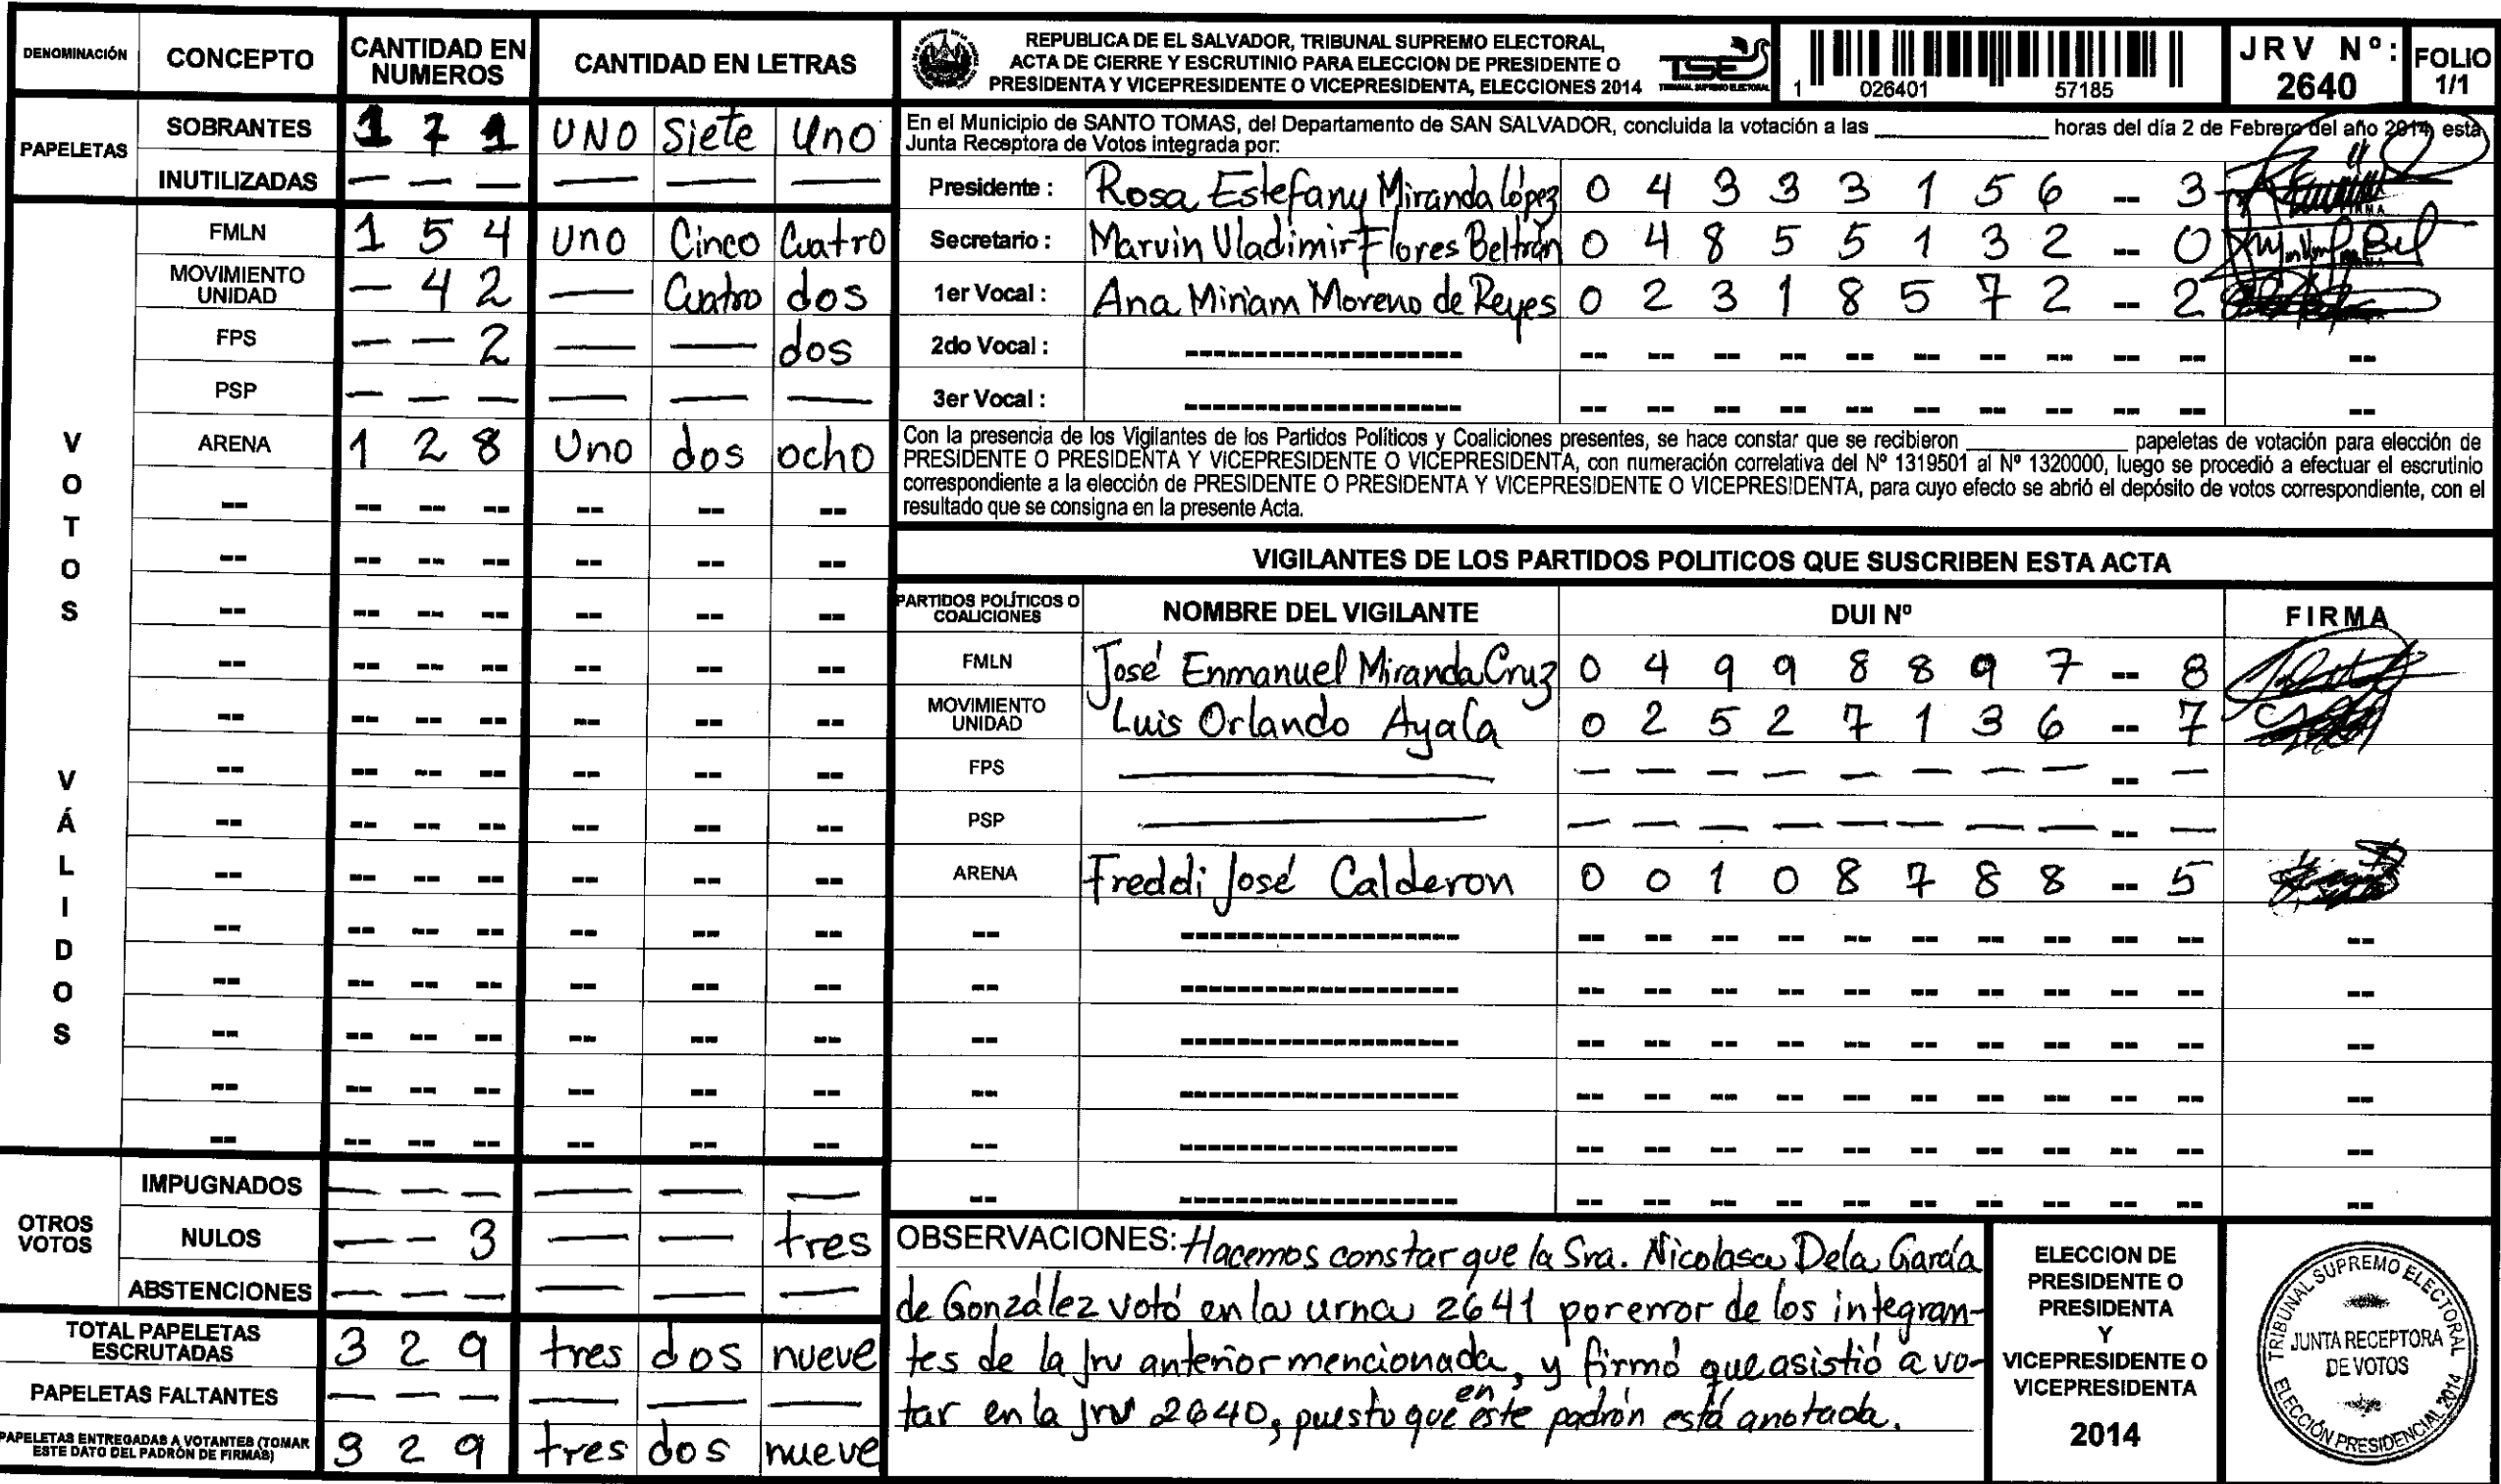 DENOMINACIÓN CONCEPTO CANTIDAD EN NUMEROS CANTIDAD EN LETRAS
PAPELETAS
SOBRANTES 1 7 1 UNO Siete Uno
INUTILIZADAS — — — — — —
VOTOS VÁLIDOS
FMLN 1 5 4 Uno Cinco Cuatro
MOVIMIENTO UNIDAD — 4 2 — Cuatro dos
FPS — — 2 — — dos
PSP — — — — — —
ARENA 1 2 8 Uno dos ocho
-- -- -- -- -- -- --
-- -- -- -- -- -- --
-- -- -- -- -- -- --
-- -- -- -- -- -- --
-- -- -- -- -- -- --
-- -- -- -- -- -- --
-- -- -- -- -- -- --
-- -- -- -- -- -- --
-- -- -- -- -- -- --
-- -- -- -- -- -- --
-- -- -- -- -- -- --
-- -- -- -- -- -- --
-- -- -- -- -- -- --
OTROS VOTOS
IMPUGNADOS — — — — — —
NULOS — — 3 — — tres
ABSTENCIONES — — — — — —
TOTAL PAPELETAS ESCRUTADAS 3 2 9 tres dos nueve
PAPELETAS FALTANTES — — — — — —
PAPELETAS ENTREGADAS A VOTANTES (TOMAR ESTE DATO DEL PADRÓN DE FIRMAS) 3 2 9 tres dos nueve
REPUBLICA DE EL SALVADOR, TRIBUNAL SUPREMO ELECTORAL,
ACTA DE CIERRE Y ESCRUTINIO PARA ELECCION DE PRESIDENTE O
PRESIDENTA Y VICEPRESIDENTE O VICEPRESIDENTA, ELECCIONES 2014
TSE
TRIBUNAL SUPREMO ELECTORAL
1 026401 57185
JRV Nº: 2640
FOLIO 1/1
En el Municipio de SANTO TOMAS, del Departamento de SAN SALVADOR, concluida la votación a las ____ horas del día 2 de Febrero del año 2014, esta
Junta Receptora de Votos integrada por:
Presidente : Rosa Estefany Miranda López 0 4 3 3 3 1 5 6 -- 3
Secretario : Marvin Vladimir Flores Beltrán 0 4 8 5 5 1 3 2 -- 0
1er Vocal : Ana Miriam Moreno de Reyes 0 2 3 1 8 5 7 2 -- 2
2do Vocal : ------------------ -- -- -- -- -- -- -- -- -- -- --
3er Vocal : ------------------ -- -- -- -- -- -- -- -- -- -- --
Con la presencia de los Vigilantes de los Partidos Políticos y Coaliciones presentes, se hace constar que se recibieron ____ papeletas de votación para elección de
PRESIDENTE O PRESIDENTA Y VICEPRESIDENTE O VICEPRESIDENTA, con numeración correlativa del Nº 1319501 al Nº 1320000, luego se procedió a efectuar el escrutinio
correspondiente a la elección de PRESIDENTE O PRESIDENTA Y VICEPRESIDENTE O VICEPRESIDENTA, para cuyo efecto se abrió el depósito de votos correspondiente, con el
resultado que se consigna en la presente Acta.
VIGILANTES DE LOS PARTIDOS POLITICOS QUE SUSCRIBEN ESTA ACTA
PARTIDOS POLÍTICOS O COALICIONES NOMBRE DEL VIGILANTE DUI Nº FIRMA
FMLN José Enmanuel Miranda Cruz 0 4 9 9 8 8 9 7 -- 8
MOVIMIENTO UNIDAD Luis Orlando Ayala 0 2 5 2 7 1 3 6 -- 7
FPS — — — — — — — — — -- —
PSP — — — — — — — — — -- —
ARENA Freddi José Calderon 0 0 1 0 8 7 8 8 -- 5
-- ------------------ -- -- -- -- -- -- -- -- -- -- --
-- ------------------ -- -- -- -- -- -- -- -- -- -- --
-- ------------------ -- -- -- -- -- -- -- -- -- -- --
-- ------------------ -- -- -- -- -- -- -- -- -- -- --
-- ------------------ -- -- -- -- -- -- -- -- -- -- --
-- ------------------ -- -- -- -- -- -- -- -- -- -- --
OBSERVACIONES: Hacemos constar que la Sra. Nicolasa Dela García
de González votó en la urna 2641 por error de los integran-
tes de la jrv anterior mencionada, y firmó que asistió a vo-
tar en la jrv 2640, puesto que en este padrón está anotada.
ELECCION DE
PRESIDENTE O
PRESIDENTA
Y
VICEPRESIDENTE O
VICEPRESIDENTA
2014
TRIBUNAL SUPREMO ELECTORAL
JUNTA RECEPTORA
DE VOTOS
ELECCIÓN PRESIDENCIAL 2014